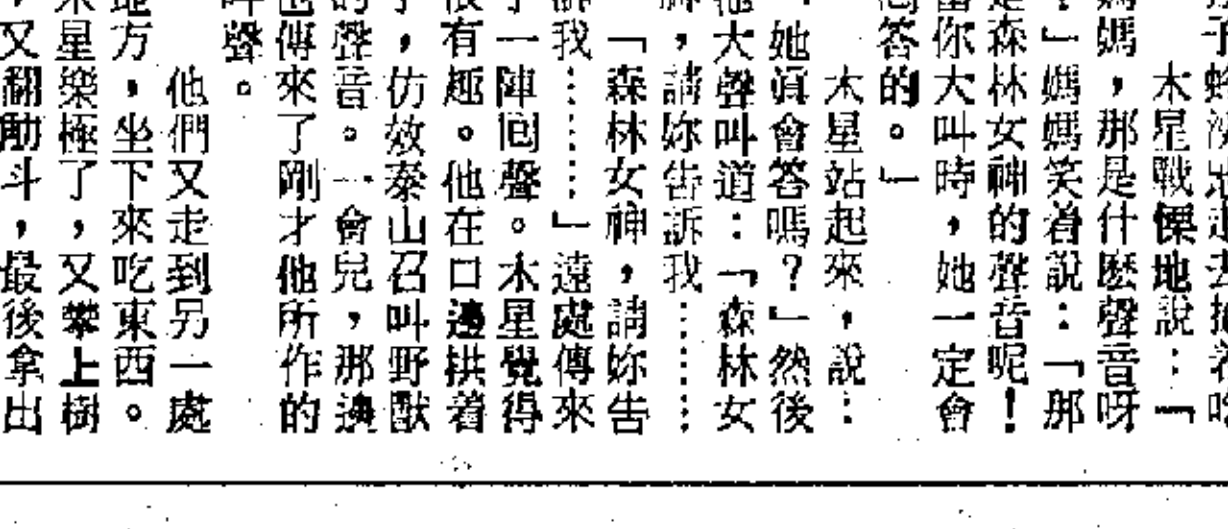 木星戰慄地說：「
媽媽，那是什麽聲音呀
？」媽媽笑着說：「那
是森林女神的聲音呢！
當你大叫時，她一定會
回答的。」
木星站起來，說：
她眞會答嗎？」然後
他大聲叫道：「森林女
神，請妳告訴我……
「森林女神，請妳告
訴我……」遠處傳來
了一陣回聲。木星覺得
很有趣。他在口邊拱着
手，仿效泰山召叫野獸
的聲音。一會兒，那邊
也傳來了剛才他所作的
叫聲。
他們又走到另一處
地方，坐下來吃東西。
木星樂極了，又攀上樹
，又翻觔斗，最後拿出